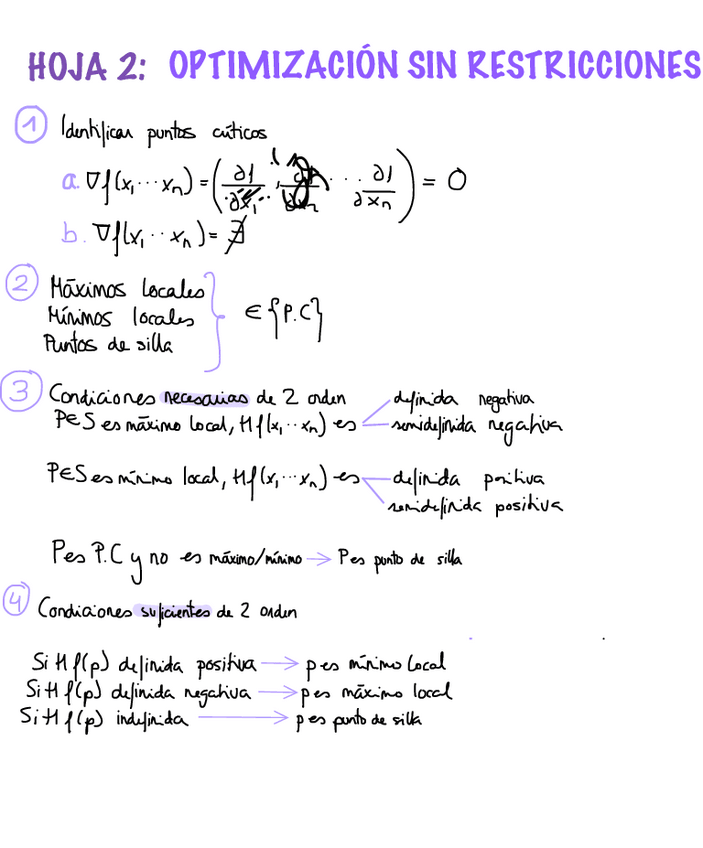 HOJA 2: OPTIMIZACIÓN SIN RESTRICCIONES
1 Identificar puntos críticos
a. ∇f(x₁ ... xₙ) = (∂f/∂x₁ ... ∂f/∂xₙ) = 0
b. ∇f(x₁ ... xₙ) = ∄
2 Máximos locales
Mínimos locales
Puntos de silla
∈ {P.C}
3 Condiciones necesarias de 2 orden
P∈S es máximo local, Hf(x₁, ... xₙ) es
definida negativa
semidefinida negativa
P∈S es mínimo local, Hf(x₁, ... xₙ) es
definida positiva
semidefinida positiva
P es P.C y no es máximo/mínimo → P es punto de silla
4 Condiciones suficientes de 2 orden
Si H f(p) definida positiva → p es mínimo local
Si H f(p) definida negativa → p es máximo local
Si H f(p) indefinida → p es punto de silla